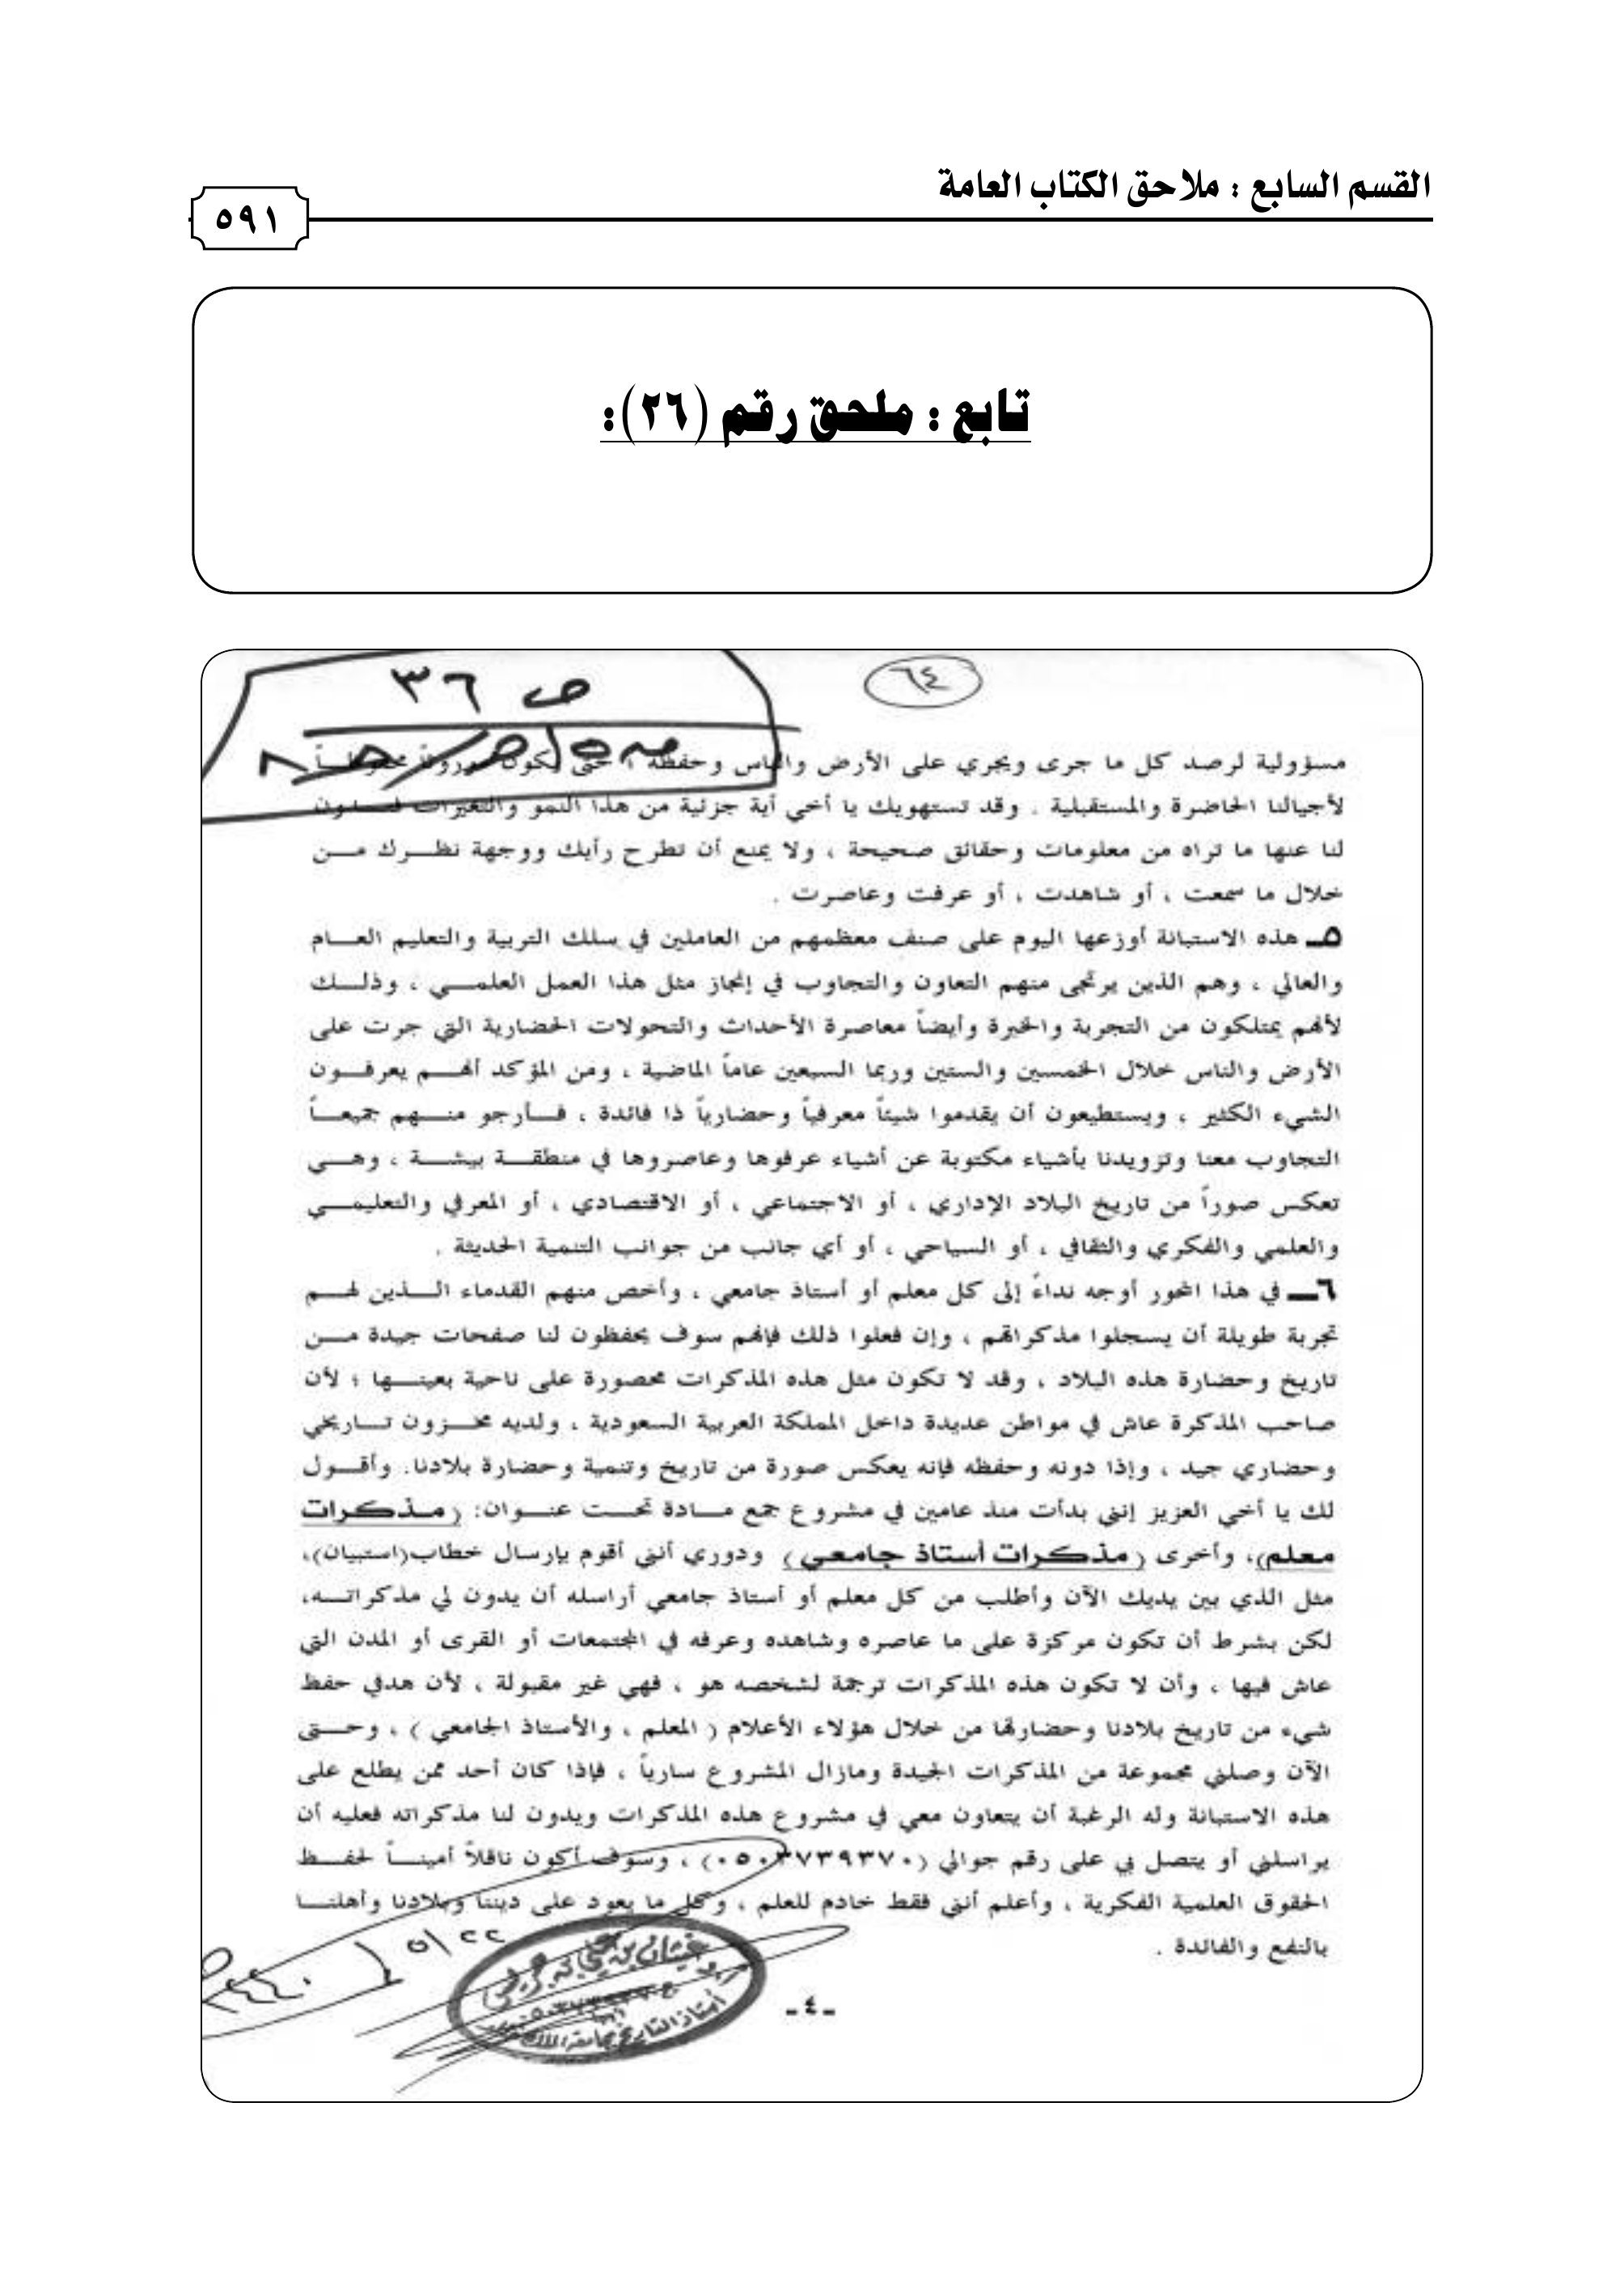 القسم السابع : ملاحق الكتاب العامة
٥٩١
تابع : ملحق رقم (٢٦):
ص ٣٦
٦٤
مسؤولية لرصد كل ما جرى ويجري على الأرض والناس وحفظه ، حتى يكون
لأجيالنا الحاضرة والمستقبلية . وقد تستهويك يا أخي أية جزئية من هذا النمو والتغيرات
لنا عنها ما تراه من معلومات وحقائق صحيحة ، ولا يمنع أن تطرح رأيك ووجهة نظرك من
خلال ما سمعت ، أو شاهدت ، أو عرفت وعاصرت .
٥ـ هذه الاستبانة أوزعها اليوم على صنف معظمهم من العاملين في سلك التربية والتعليم العام
والعالي ، وهم الذين يرتجى منهم التعاون والتجاوب في إنجاز مثل هذا العمل العلمي ، وذلك
لأنهم يمتلكون من التجربة والخبرة وأيضاً معاصرة الأحداث والتحولات الحضارية التي جرت على
الأرض والناس خلال الخمسين والستين وربما السبعين عاماً الماضية ، ومن المؤكد أنهم يعرفون
الشيء الكثير ، ويستطيعون أن يقدموا شيئاً معرفياً وحضارياً ذا فائدة ، فأرجو منهم جميعاً
التجاوب معنا وتزويدنا بأشياء مكتوبة عن أشياء عرفوها وعاصروها في منطقة بيشة ، وهي
تعكس صوراً من تاريخ البلاد الإداري ، أو الاجتماعي ، أو الاقتصادي ، أو المعرفي والتعليمي
والعلمي والفكري والثقافي ، أو السياحي ، أو أي جانب من جوانب التنمية الحديثة .
٦ـ في هذا المحور أوجه نداءً إلى كل معلم أو أستاذ جامعي ، وأخص منهم القدماء الذين لهم
تجربة طويلة أن يسجلوا مذكراتهم ، وإن فعلوا ذلك فإنهم سوف يحفظون لنا صفحات جيدة من
تاريخ وحضارة هذه البلاد ، وقد لا تكون مثل هذه المذكرات محصورة على ناحية بعينها ؛ لأن
صاحب المذكرة عاش في مواطن عديدة داخل المملكة العربية السعودية ، ولديه مخزون تاريخي
وحضاري جيد ، وإذا دونه وحفظه فإنه يعكس صورة من تاريخ وتنمية وحضارة بلادنا. وأقول
لك يا أخي العزيز إنني بدأت منذ عامين في مشروع جمع مادة تحت عنوان: (مذكرات
معلم)، وأخرى (مذكرات أستاذ جامعي) ودوري أنني أقوم بإرسال خطاب(استبيان)،
مثل الذي بين يديك الآن وأطلب من كل معلم أو أستاذ جامعي أراسله أن يدون لي مذكراته،
لكن بشرط أن تكون مركزة على ما عاصره وشاهده وعرفه في المجتمعات أو القرى أو المدن التي
عاش فيها ، وأن لا تكون هذه المذكرات ترجمة لشخصه هو ، فهي غير مقبولة ، لأن هدفي حفظ
شيء من تاريخ بلادنا وحضارتها من خلال هؤلاء الأعلام ( المعلم ، والأستاذ الجامعي ) ، وحتى
الآن وصلني مجموعة من المذكرات الجيدة ومازال المشروع سارياً ، فإذا كان أحد ممن يطلع على
هذه الاستبانة وله الرغبة أن يتعاون معي في مشروع هذه المذكرات ويدون لنا مذكراته فعليه أن
يراسلني أو يتصل بي على رقم جوالي (٠٥٠٣٧٣٩٣٧٠) ، وسوف أكون ناقلاً أميناً لحفظ
الحقوق العلمية الفكرية ، وأعلم أنني فقط خادم للعلم ، وكل ما يعود على ديننا وبلادنا وأهلنا
بالنفع والفائدة .
-٤-